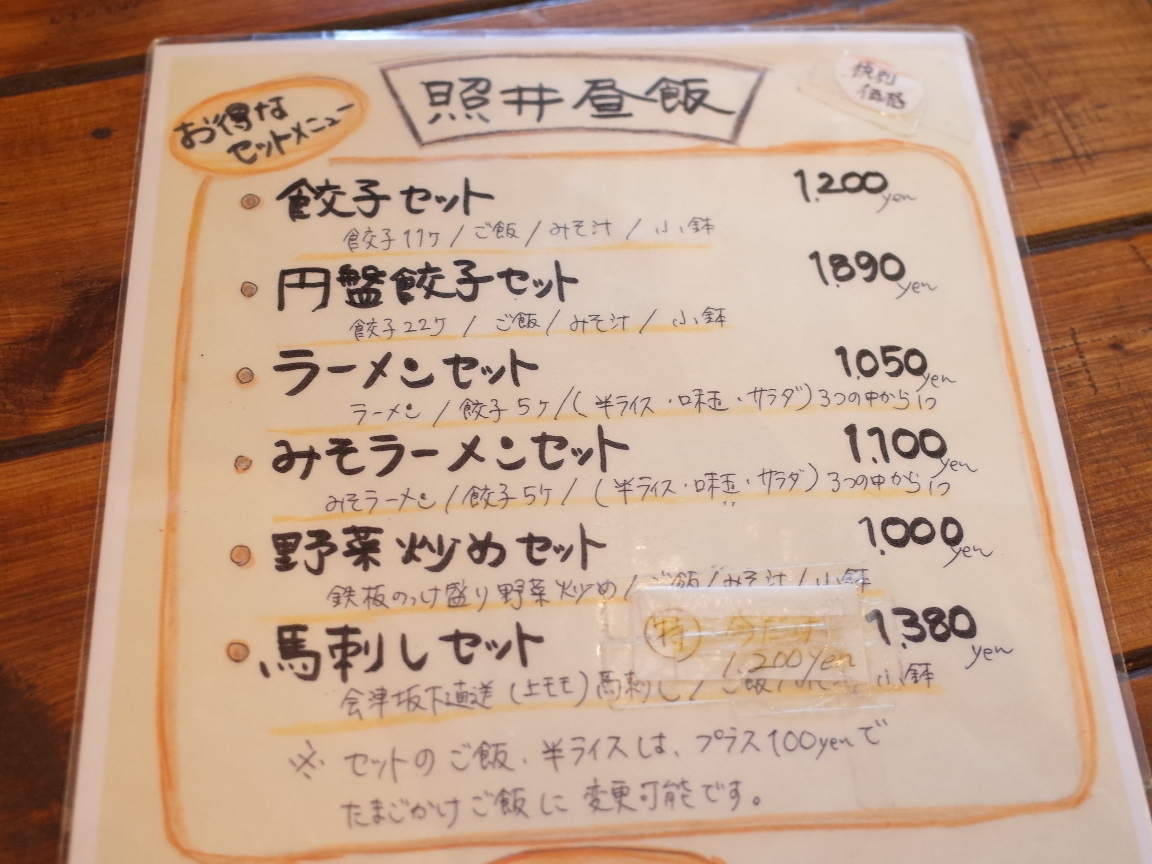 照井昼飯
特別
価格
お得な
セットメニュー
餃子セット 1,200yen
餃子11ヶ/ご飯/みそ汁/小鉢
円盤餃子セット 1,890yen
餃子22ヶ/ご飯/みそ汁/小鉢
ラーメンセット 1,050yen
ラーメン/餃子5ヶ/(半ライス・味玉・サラダ)3つの中から1つ
みそラーメンセット 1,100yen
みそラーメン/餃子5ヶ/(半ライス・味玉・サラダ)3つの中から1つ
野菜炒めセット 1,000yen
鉄板のっけ盛り野菜炒め/ご飯/みそ汁/小鉢
馬刺しセット 1,380yen
特 今だけ
1,200yen
会津坂下直送(上モモ)馬刺し/ご飯/ 小鉢
※セットのご飯・半ライスは、プラス100yenで
たまごかけご飯に変更可能です。